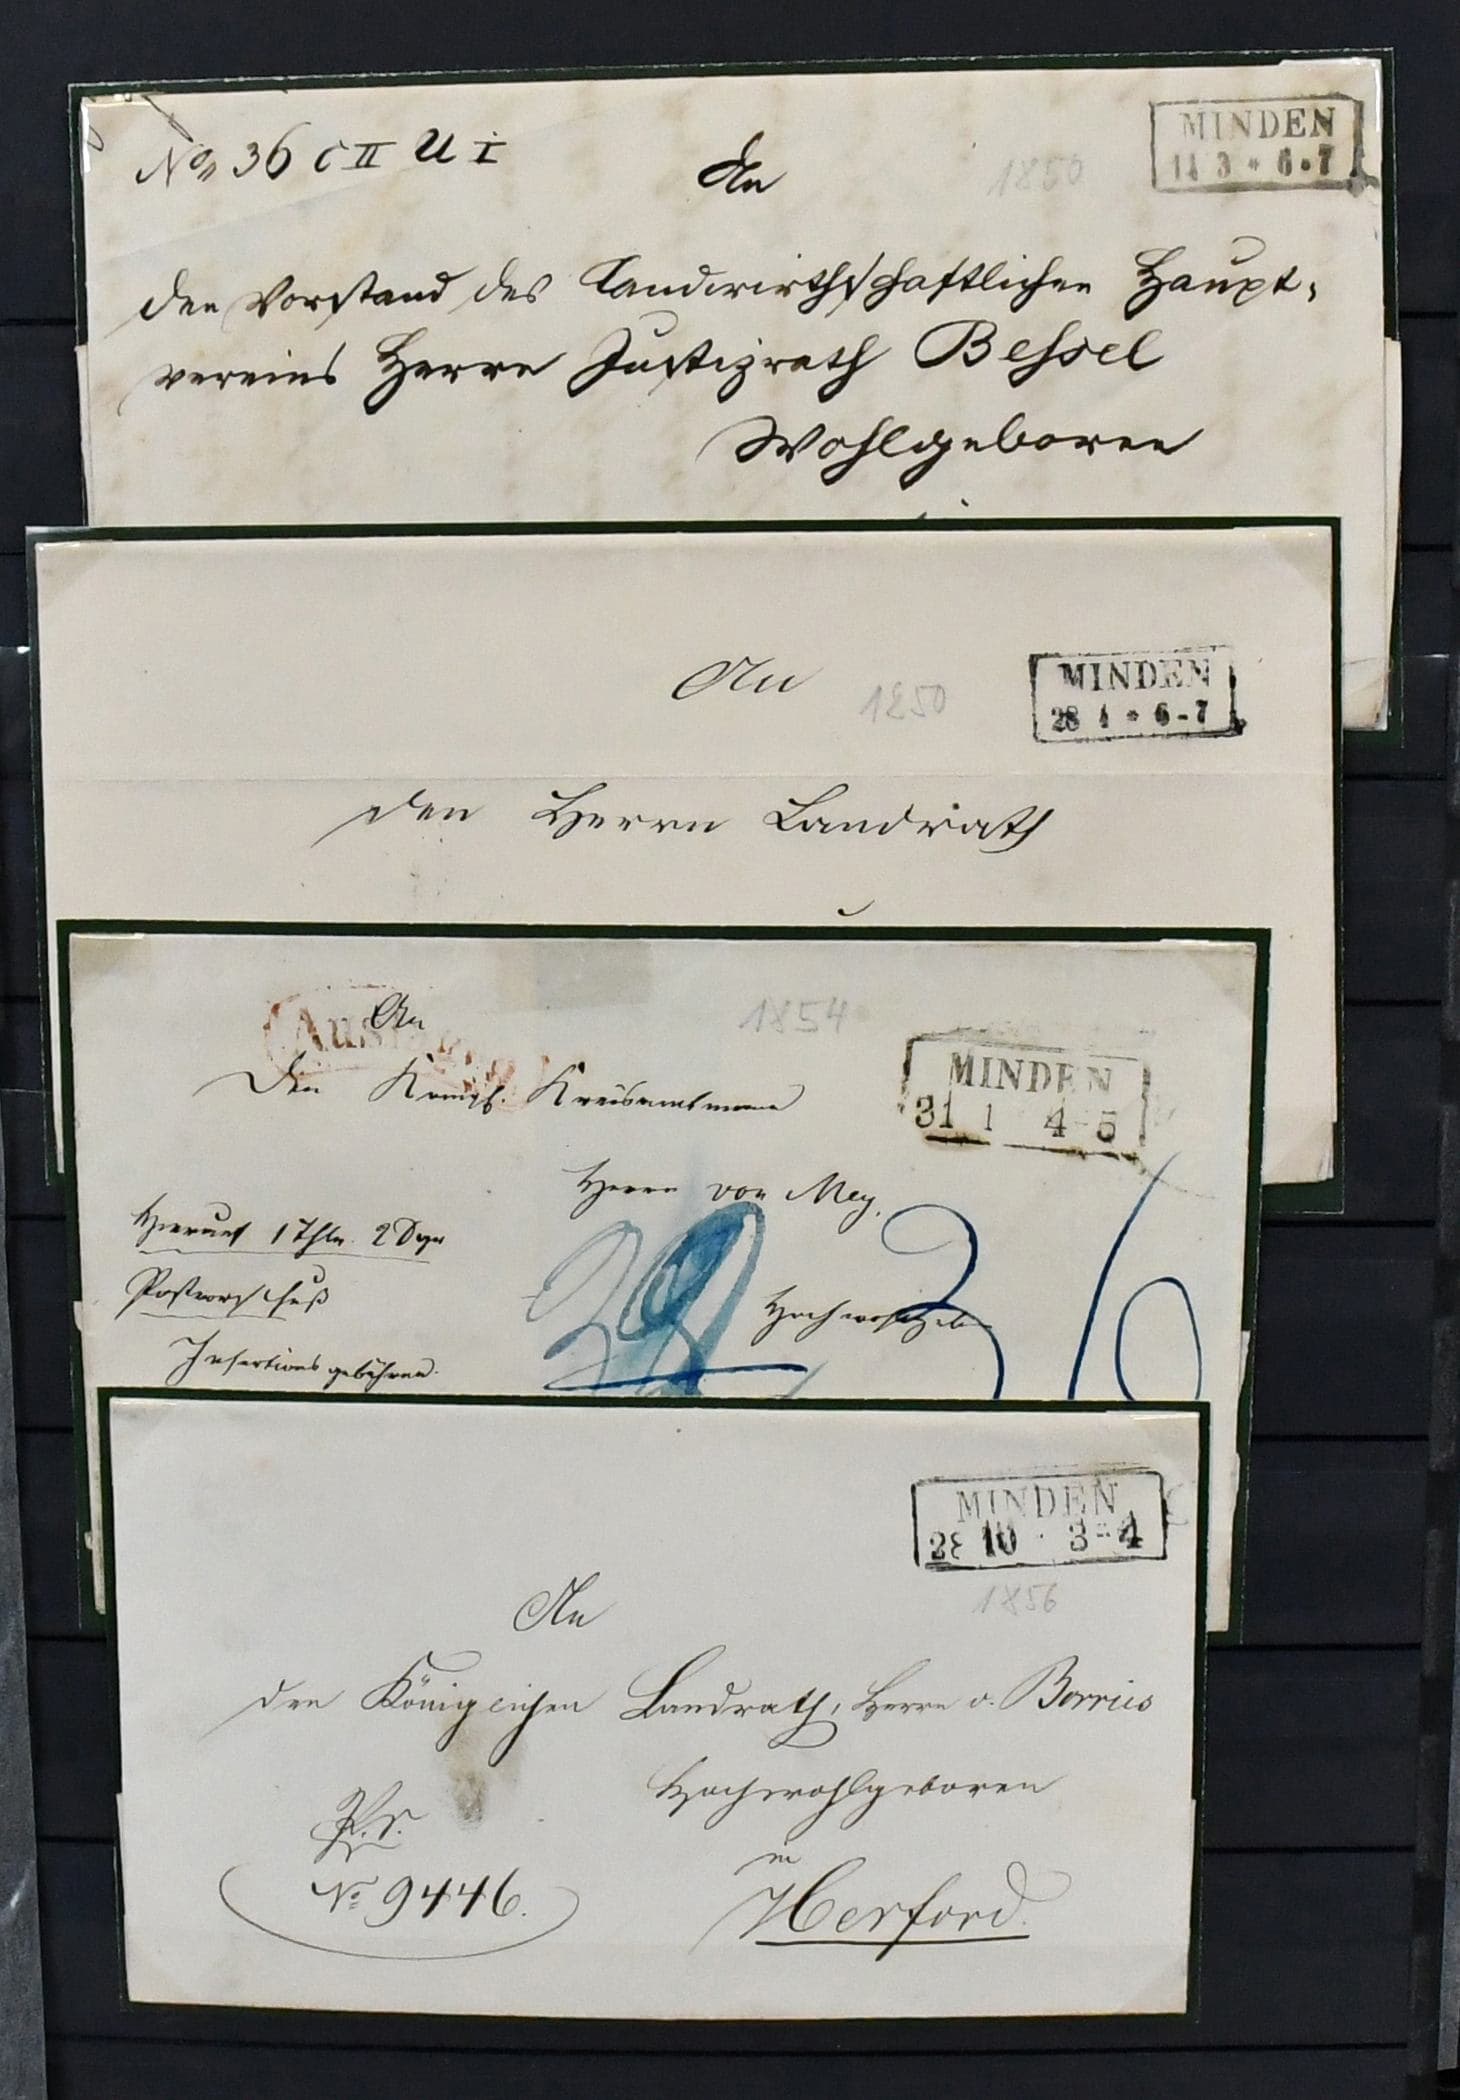 No 36 C II U I
An
1850
MINDEN
11 3 * 6-7
den Vorstand des Landwirthschaftlichen Haupt-
vereins Herrn Justizrath Bessel
Wohlgeboren
An
1850
MINDEN
28 1 * 6-7
den Herrn Landrath
An
1854
MINDEN
31 1 4-5
Den Königl. Kreisamtmann
Herrn von Mey,
Hierauf 1 Thlr. 2 Sgr
Postvorschuß
Insertionsgebühren.
MINDEN
28 10 3-4
1856
An
den Königlichen Landrath, Herrn v. Borries
Hochwohlgeboren
in
Herford.
No 9446.